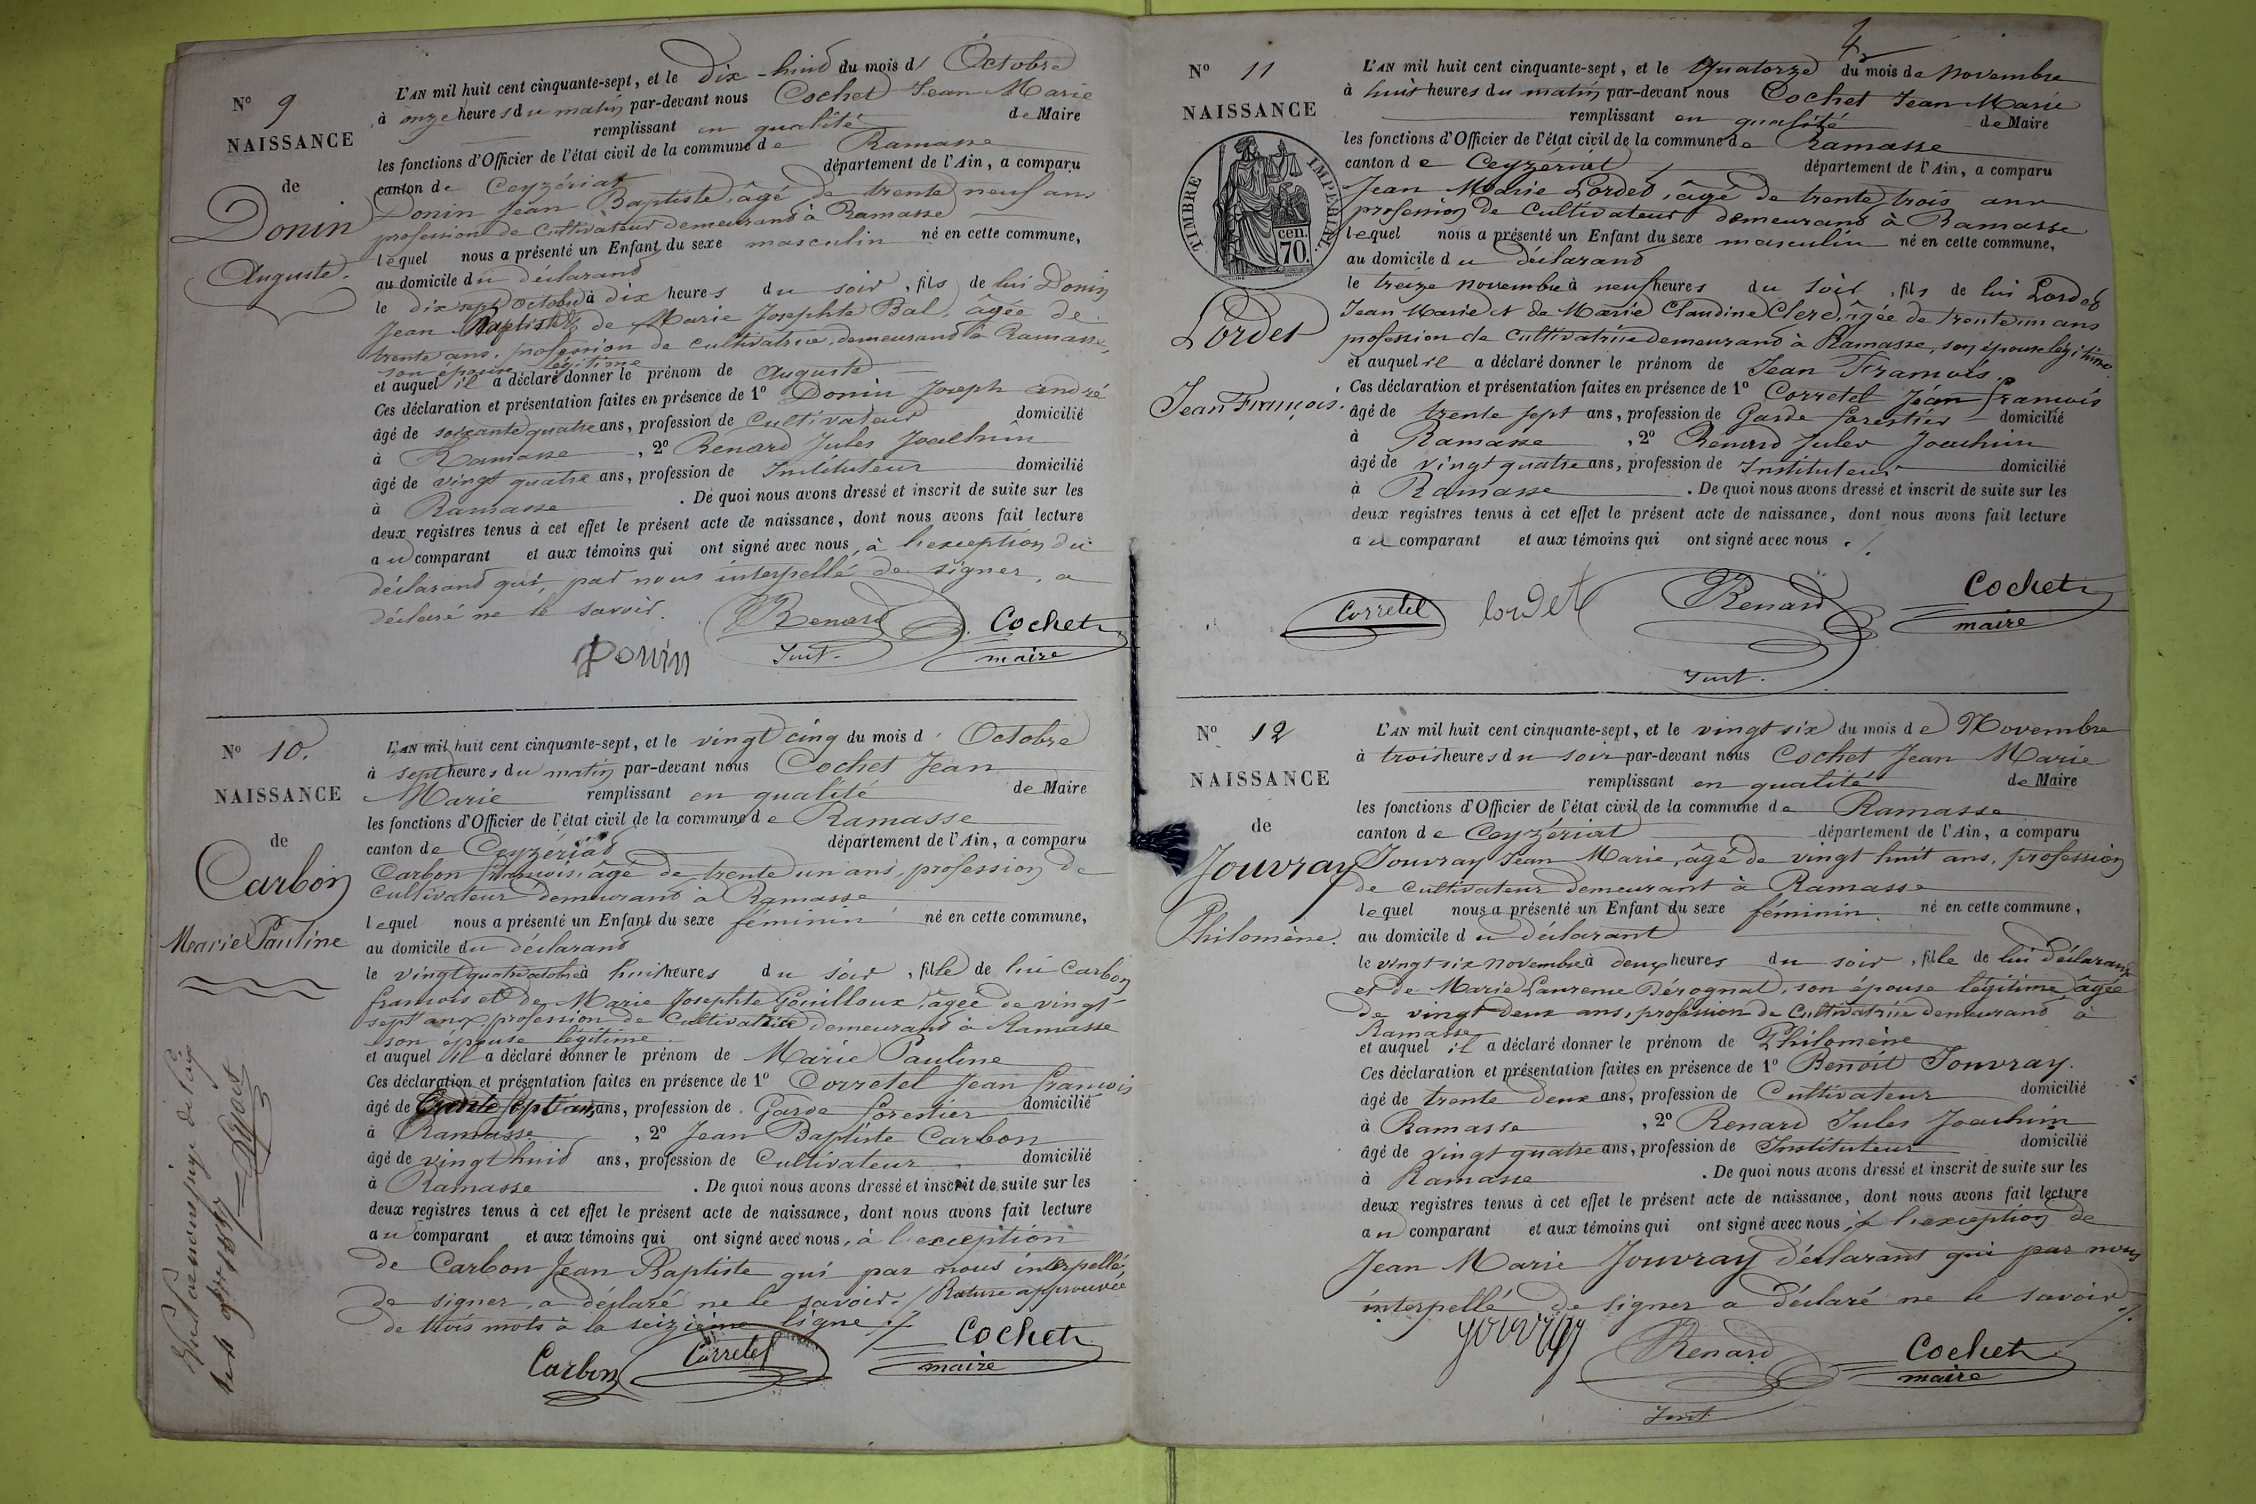 N° 9
NAISSANCE
de
Donin
Auguste.
L'AN mil huit cent cinquante-sept, et le dix-huit du mois d' Octobre
à onze heures du matin par-devant nous Cochet Jean Marie
remplissant en qualité de Maire
les fonctions d'Officier de l'état civil de la commune de Ramasse
canton de Ceyzériat département de l'Ain, a comparu
Donin Jean Baptiste, âgé de trente neuf ans
profession de Cultivateur demeurant à Ramasse
lequel nous a présenté un Enfant du sexe masculin né en cette commune,
au domicile du déclarant
le dix sept Octobre à dix heures du soir, fils de lui Donin
Jean Baptiste & de Marie Josephte Bal, âgée de
trente ans, profession de cultivatrice, demeurant à Ramasse,
son épouse légitime
et auquel il a déclaré donner le prénom de Auguste
Ces déclaration et présentation faites en présence de 1° Donin Joseph andré
âgé de soixante quatre ans, profession de Cultivateur domicilié
à Ramasse, 2° Renard Jules Joachim
âgé de vingt quatre ans, profession de Instituteur domicilié
à Ramasse. De quoi nous avons dressé et inscrit de suite sur les
deux registres tenus à cet effet le présent acte de naissance, dont nous avons fait lecture
au comparant et aux témoins qui ont signé avec nous, à l'exception du
déclarant qui, par nous interpellé de signer, a
déclaré ne le savoir.
Donin Renard Inst. Cochet maire
N° 10.
NAISSANCE
de
Carbon
Marie Pauline
L'AN mil huit cent cinquante-sept, et le vingt cinq du mois d' Octobre
à sept heures du matin par-devant nous Cochet Jean
Marie remplissant en qualité de Maire
les fonctions d'Officier de l'état civil de la commune de Ramasse
canton de Ceyzériat département de l'Ain, a comparu
Carbon françois, âgé de trente un ans, profession de
Cultivateur demeurant à Ramasse
lequel nous a présenté un Enfant du sexe féminin né en cette commune,
au domicile du déclarant
le vingt quatre octobre à huit heures du soir, fille de lui Carbon
françois et de Marie Josephte Gouilloux, âgée de vingt
sept ans, profession de Cultivatrice demeurant à Ramasse
son épouse légitime
et auquel il a déclaré donner le prénom de Marie Pauline
Ces déclaration et présentation faites en présence de 1° Corretel Jean françois
âgé de trente sept ans, profession de Garde forestier domicilié
à Ramasse, 2° Jean Baptiste Carbon
âgé de vingt huit ans, profession de Cultivateur domicilié
à Ramasse. De quoi nous avons dressé et inscrit de suite sur les
deux registres tenus à cet effet le présent acte de naissance, dont nous avons fait lecture
au comparant et aux témoins qui ont signé avec nous, à l'exception
de Carbon Jean Baptiste qui par nous interpellé
de signer, a déclaré ne le savoir. / Rature approuvée
de trois mots à la seizième ligne ./.
Carbon Corretel Cochet maire
1857
4
N° 11
NAISSANCE
TIMBRE IMPÉRIAL
70. cen.
Lordet
Jean François.
L'AN mil huit cent cinquante-sept, et le Quatorze du mois de Novembre
à huit heures du matin par-devant nous Cochet Jean Marie
remplissant en qualité de Maire
les fonctions d'Officier de l'état civil de la commune de Ramasse
canton de Ceyzériat département de l'Ain, a comparu
Jean Marie Lordet, âgé de trente trois ans
profession de Cultivateur demeurant à Ramasse
lequel nous a présenté un Enfant du sexe masculin né en cette commune,
au domicile du déclarant
le treize novembre à neuf heures du soir, fils de lui Lordet
Jean Marie & de Marie Claudine Clerc, âgée de trente un ans
profession de Cultivatrice demeurant à Ramasse, son épouse légitime.
et auquel il a déclaré donner le prénom de Jean François.
Ces déclaration et présentation faites en présence de 1° Corretel Jean françois
âgé de trente sept ans, profession de Garde forestier domicilié
à Ramasse, 2° Renard Jules Joachim
âgé de vingt quatre ans, profession de Instituteur domicilié
à Ramasse. De quoi nous avons dressé et inscrit de suite sur les
deux registres tenus à cet effet le présent acte de naissance, dont nous avons fait lecture
au comparant et aux témoins qui ont signé avec nous ./.
Corretel Lordet Renard Inst. Cochet maire
N° 12
NAISSANCE
de
Jouvray
Philomène.
L'AN mil huit cent cinquante-sept, et le vingt six du mois de Novembre
à trois heures du soir par-devant nous Cochet Jean Marie
remplissant en qualité de Maire
les fonctions d'Officier de l'état civil de la commune de Ramasse
canton de Ceyzériat département de l'Ain, a comparu
Jouvray Jean Marie, âgé de vingt huit ans, profession
de cultivateur demeurant à Ramasse
lequel nous a présenté un Enfant du sexe féminin né en cette commune,
au domicile du déclarant
le vingt six novembre à deux heures du soir, fille de lui déclarant
et de Marie Laurence Dérognat, son épouse légitime âgée
de vingt deux ans, profession de Cultivatrice demeurant à
Ramasse
et auquel il a déclaré donner le prénom de Philomène
Ces déclaration et présentation faites en présence de 1° Benoît Jouvray.
âgé de trente deux ans, profession de Cultivateur domicilié
à Ramasse, 2° Renard Jules Joachim
âgé de vingt quatre ans, profession de Instituteur domicilié
à Ramasse. De quoi nous avons dressé et inscrit de suite sur les
deux registres tenus à cet effet le présent acte de naissance, dont nous avons fait lecture
au comparant et aux témoins qui ont signé avec nous, à l'exception de
Jean Marie Jouvray déclarant qui par nous
interpellé de signer a déclaré ne le savoir ./.
Jouvray Renard Inst Cochet maire